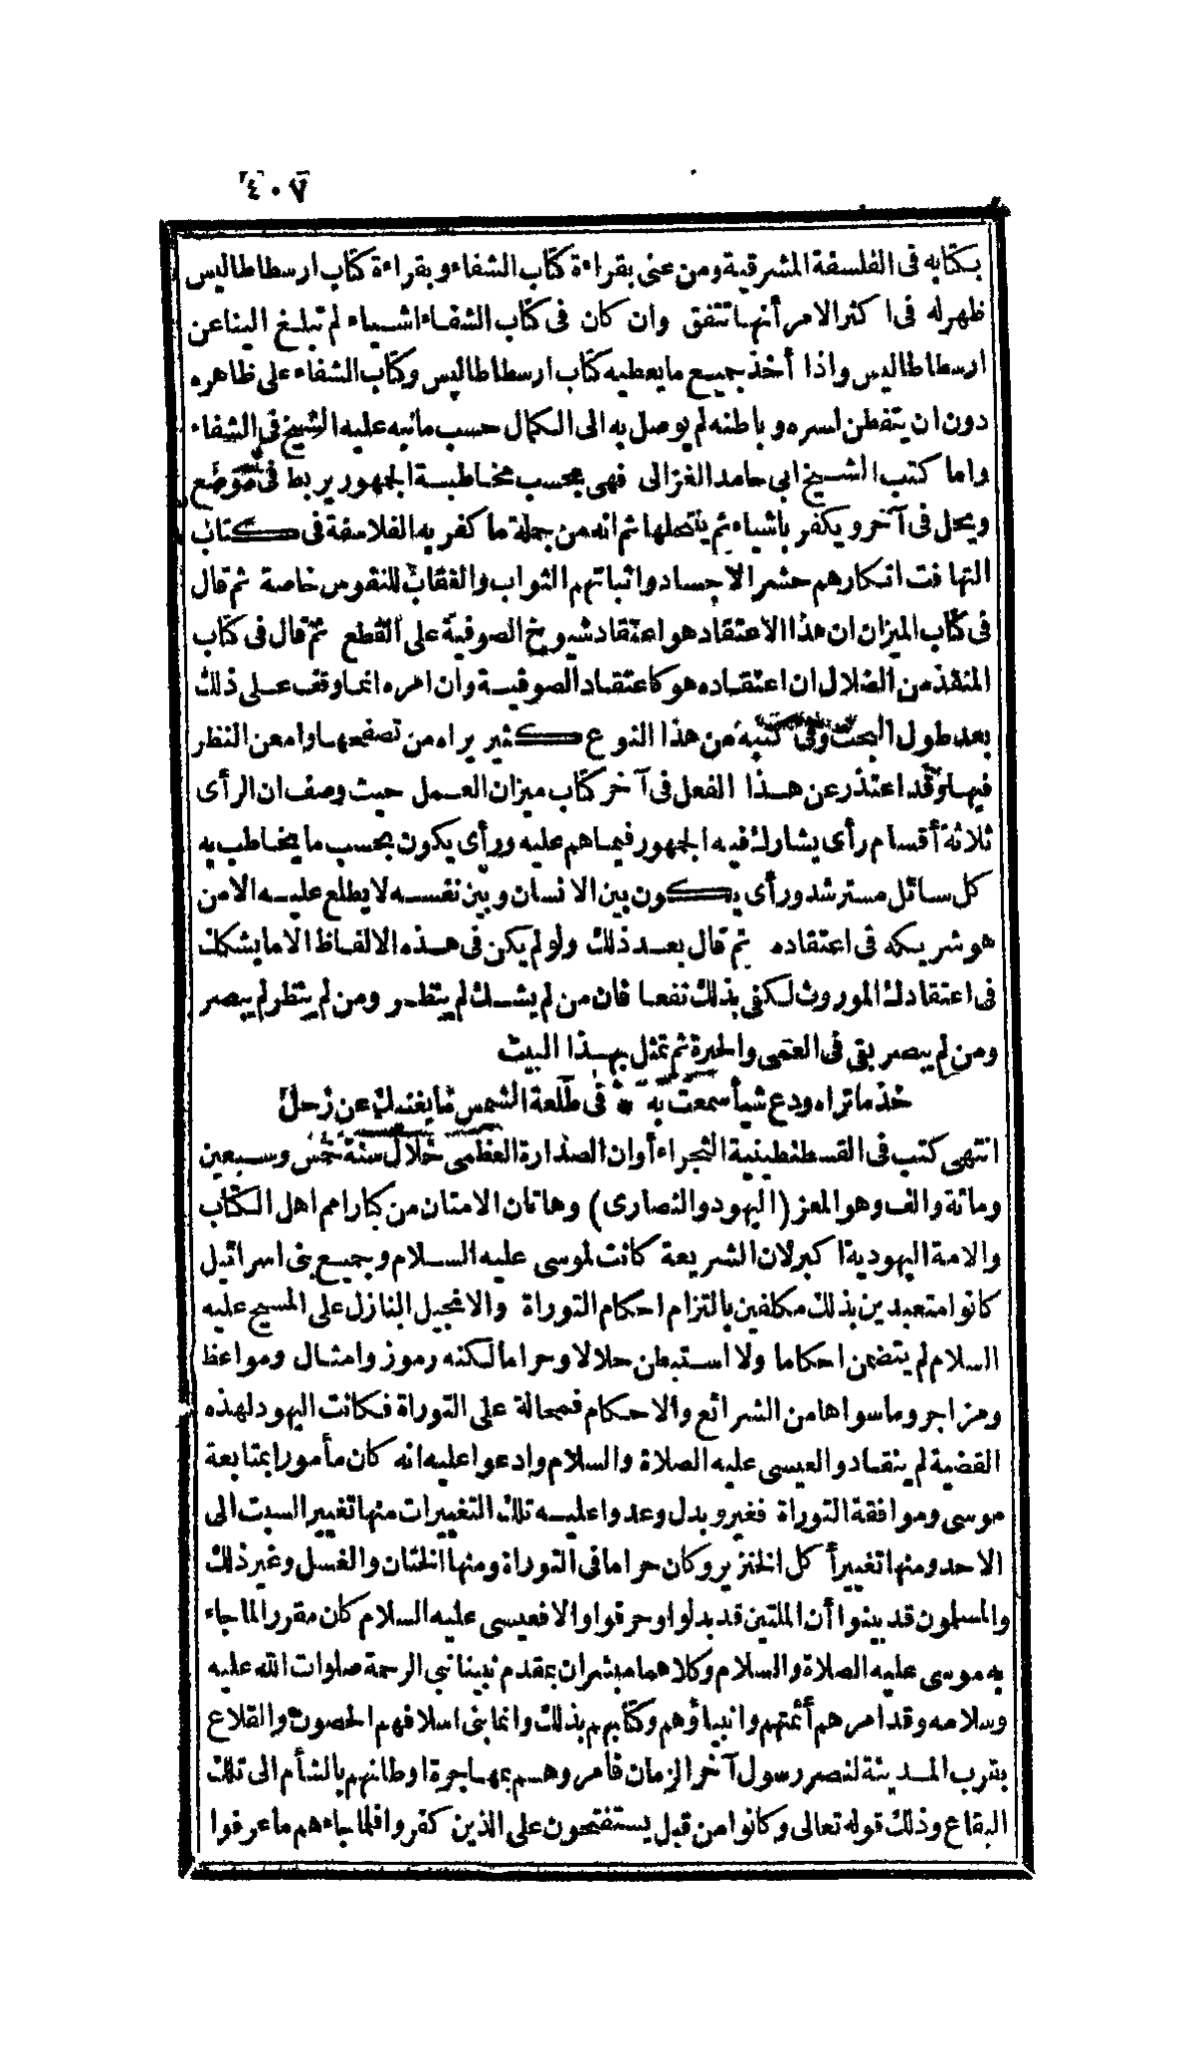 ٤٠٧
بكتابه فى الفلسفة المشرقية ومن عنى بقراءة كتاب الشفاء وبقراءة كتاب ارسطاطاليس
ظهر له فى اكثر الامر أنها تتفق وان كان فى كتاب الشفاء اشياء لم تبلغ الينا عن
ارسطاطاليس واذا أخذ جميع ما يعطيه كتاب ارسطاطاليس وكتاب الشفاء على ظاهره
دون ان يتفطن لسره وباطنه لم يوصل به الى الكمال حسب ما نبه عليه الشيخ فى الشفاء
واما كتب الشيخ ابى حامد الغزالى فهى بحسب مخاطبة الجمهور يربط فى موضع
ويحل فى آخر ويكفر باشياء ثم ينتحلها ثم انه من جملة ما كفر به الفلاسفة فى كتاب
التهافت انكارهم حشر الاجساد واثباتهم الثواب والعقاب للنفوس خاصة ثم قال
فى كتاب الميزان ان هذا الاعتقاد هو اعتقاد شيوخ الصوفية على القطع ثم قال فى كتاب
المنقذ من الضلال ان اعتقاده هو كاعتقاد الصوفية وان امره انما وقف على ذلك
بعد طول البحث وفى كتبه من هذا النوع كثير يراه من تصفحها وامعن النظر
فيها وقد اعتذر عن هذا الفعل فى آخر كتاب ميزان العمل حيث وصف ان الرأى
ثلاثة أقسام رأى يشارك فيه الجمهور فيما هم عليه ورأى يكون بحسب ما يخاطب به
كل سائل مسترشد ورأى يكون بين الانسان وبين نفسه لا يطلع عليه الا من
هو شريكه فى اعتقاده ثم قال بعد ذلك ولو لم يكن فى هذه الالفاظ الا ما يشكك
فى اعتقادك الموروث لكفى بذلك نفعا فان من لم يشك لم ينظر ومن لم ينظر لم يبصر
ومن لم يبصر بقى فى العمى والحيرة ثم تمثل بهذا البيت
خذ ما تراه ودع شيأ سمعت به * فى طلعة الشمس ما يغنيك عن زحل
انتهى كتب فى القسطنطينية الثجراء أوان الصدارة العظمى خلال سنة خمس وسبعين
ومائة والف وهو المعز (اليهود والنصارى) وهاتان الامتان من كبار امم اهل الكتاب
والامة اليهودية اكبر لان الشريعة كانت لموسى عليه السلام وجميع بنى اسرائيل
كانوا متعبدين بذلك مكلفين بالتزام احكام التوراة والانجيل النازل على المسيح عليه
السلام لم يتضمن احكاما ولا استبطن حلالا وحراما لكنه رموز وامثال ومواعظ
ومزاجر وما سواها من الشرائع والاحكام فمحالة على التوراة فكانت اليهود لهذه
القضية لم ينقادوا لعيسى عليه الصلاة والسلام وادعوا عليه انه كان مأمورا بمتابعة
موسى وموافقة التوراة فغير وبدل وعدوا عليه تلك التغييرات منها تغيير السبت الى
الاحد ومنها تغيير أكل الخنزير وكان حراما فى التوراة ومنها الختان والغسل وغير ذلك
والمسلمون قد بينوا أن الملتين قد بدلوا وحرفوا والا فعيسى عليه السلام كان مقررا لما جاء
به موسى عليه الصلاة والسلام وكلاهما مبشران بمقدم نبينا نبى الرحمة صلوات الله عليه
وسلامه وقد امرهم أئمتهم وانبياؤهم وكتابهم بذلك وانما بنى اسلافهم الحصون والقلاع
بقرب المدينة لنصر رسول آخر الزمان فامروهم بمهاجرة اوطانهم بالشأم الى تلك
البقاع وذلك قوله تعالى وكانوا من قبل يستفتحون على الذين كفروا فلما جاءهم ما عرفوا